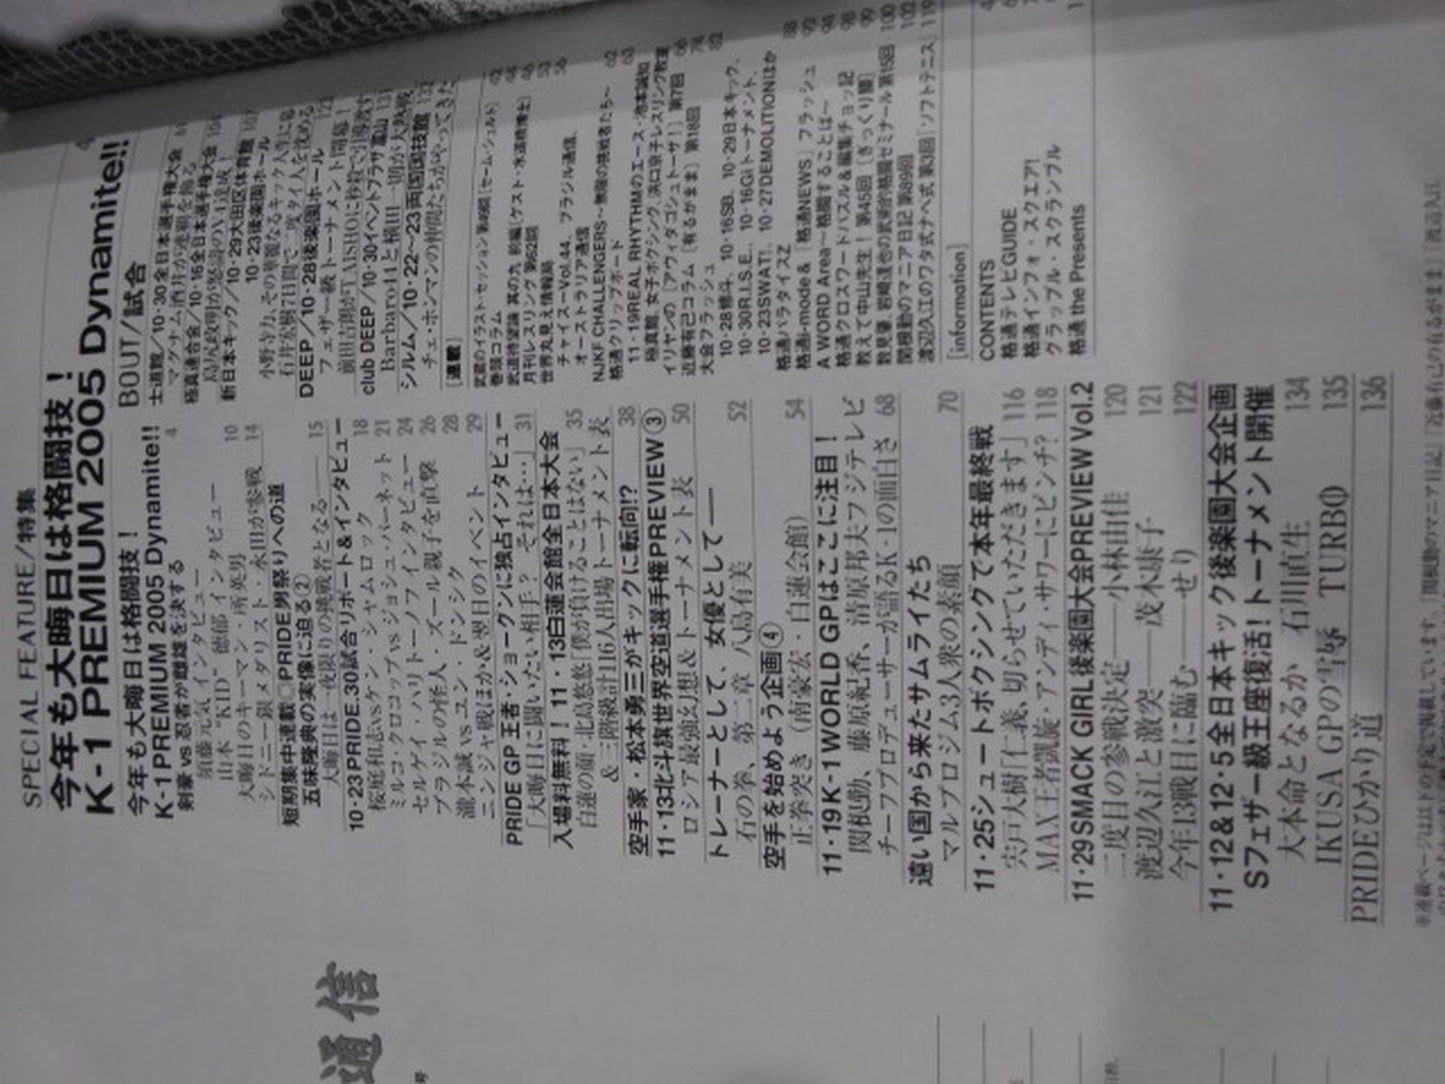 SPECIAL FEATURE/特集
今年も大晦日は格闘技！
K-1 PREMIUM 2005 Dynamite!!
今年も大晦日は格闘技！
K-1 PREMIUM 2005 Dynamite!! 4
剣豪 vs 忍者が雌雄を決する
須藤元気 インタビュー
山本“KID”徳郁 インタビュー 10
大晦日のキーマン・所英男 14
シドニー銀メダリスト・永田が参戦
短期集中連載□PRIDE男祭りへの道
五味隆典の実像に迫る② 15
大晦日は一夜限りの挑戦者となる
10・23 PRIDE.30試合リポート＆インタビュー
桜庭和志 vs ケン・シャムロック 18
ミルコ・クロコップ vs ジョシュ・バーネット 21
セルゲイ・ハリトーノフインタビュー 24
ブラジルの怪人・ズール親子を直撃 26
瀧本誠 vs ユン・ドンシク 28
ニンジャ戦ほか＆翌日のイベント 29
PRIDE GP 王者・ショーグンに独占インタビュー
「大晦日に闘いたい相手？ それは…」 31
入場料無料！ 11・13白蓮会館全日本大会
白蓮の顔・北島悠悠「僕が負けることはない」 35
＆三階級計116人出場トーナメント表
空手家・松本勇三がキックに転向!? 38
11・13北斗旗世界空道選手権PREVIEW③
ロシア最強幻想＆トーナメント表 50
トレーナーとして、女優として──
石の拳、第二章 八島有美 52
空手を始めよう企画④
正拳突き（南豪宏・白蓮会館） 54
11・19 K-1 WORLD GPはここに注目！
関根勤、藤原紀香、清原邦夫フジテレビ
チーフプロデューサーが語るK-1の面白さ 68
遠い国から来たサムライたち
マルプロジム3人衆の素顔 70
11・25シュートボクシングで本年最終戦
宍戸大樹「仁義、切らせていただきます」 116
MAX王者凱旋・アンディ・サワーにピンチ？ 118
11・29 SMACK GIRL後楽園大会PREVIEW Vol.2
二度目の参戦決定──小林由佳 120
渡辺久江と激突──茂木康子 121
今年13戦目に臨む──せり 122
11・12＆12・5全日本キック後楽園大会企画
Sフェザー級王座復活！ トーナメント開催
大本命となるか 石川直生 134
IKUSA GPの雪辱 TURBΦ 135
PRIDEひかり道 136
BOUT/試合
士道館／10・30全日本選手権大会
マグナム酒井が連覇を飾る
極真連合会／10・16全日本選手権大会
新日本キック／10・29大田区体育館
10・23後楽園ホール
DEEP／10・28後楽園ホール
フェザー級トーナメント開幕！
club DEEP／10・30イベントプラザ富山
Barbaro44と横田一則が大熱戦
シルム／10・22〜23両国国技館
チェ・ホンマンの仲間たちがやってきた
［連載］
武蔵のイラスト・セッション 第49回［セーム・シュルト］ 42
巻頭コラム 44
武道待望論 其の九 前編［ゲスト・水道橋博士］ 46
月刊レスリング 第62回 53
世界丸見え情報局 56
チャイスーVol.44、ブラジル通信、
オーストラリア通信
NJKF CHALLENGERS〜無限の挑戦者たち〜 62
格通クリップボード 63
11・19REAL RHYTHMのエース・池本誠知
極真館、女子ボクシング、浜口京子レスリング教室
イリヤンの［アウィダゴシュトーサ！］第7回 66
近藤有己コラム［有るがまま］第18回 74
大会フラッシュ 82
10・28修斗、10・16SB、10・29日本キック、
10・30R.I.S.E.、10・16Giトーナメント、
10・23SWAT!、10・27DEMOLITIONほか
格通パラダイスZ 88
格通i-mode＆［格通NEWS］フラッシュ 92
A WORD Area〜格闘することば〜 94
格通クロスワードパズル＆編集チョッ記 98
教えて中山先生！ 第45回［ぎっくり腰］ 99
数見肇、岩崎達也の武術的格闘セミナール 第15回 100
関根勤のマニア日記 第89回 102
渡辺久江のワタ式ナベ式 第3回［ソフトテニス］ 119
［information］
CONTENTS
格通テレビGUIDE
格通インフォ・スクエア!
グラップル・スクランブル
格通 the Presents
通信
号